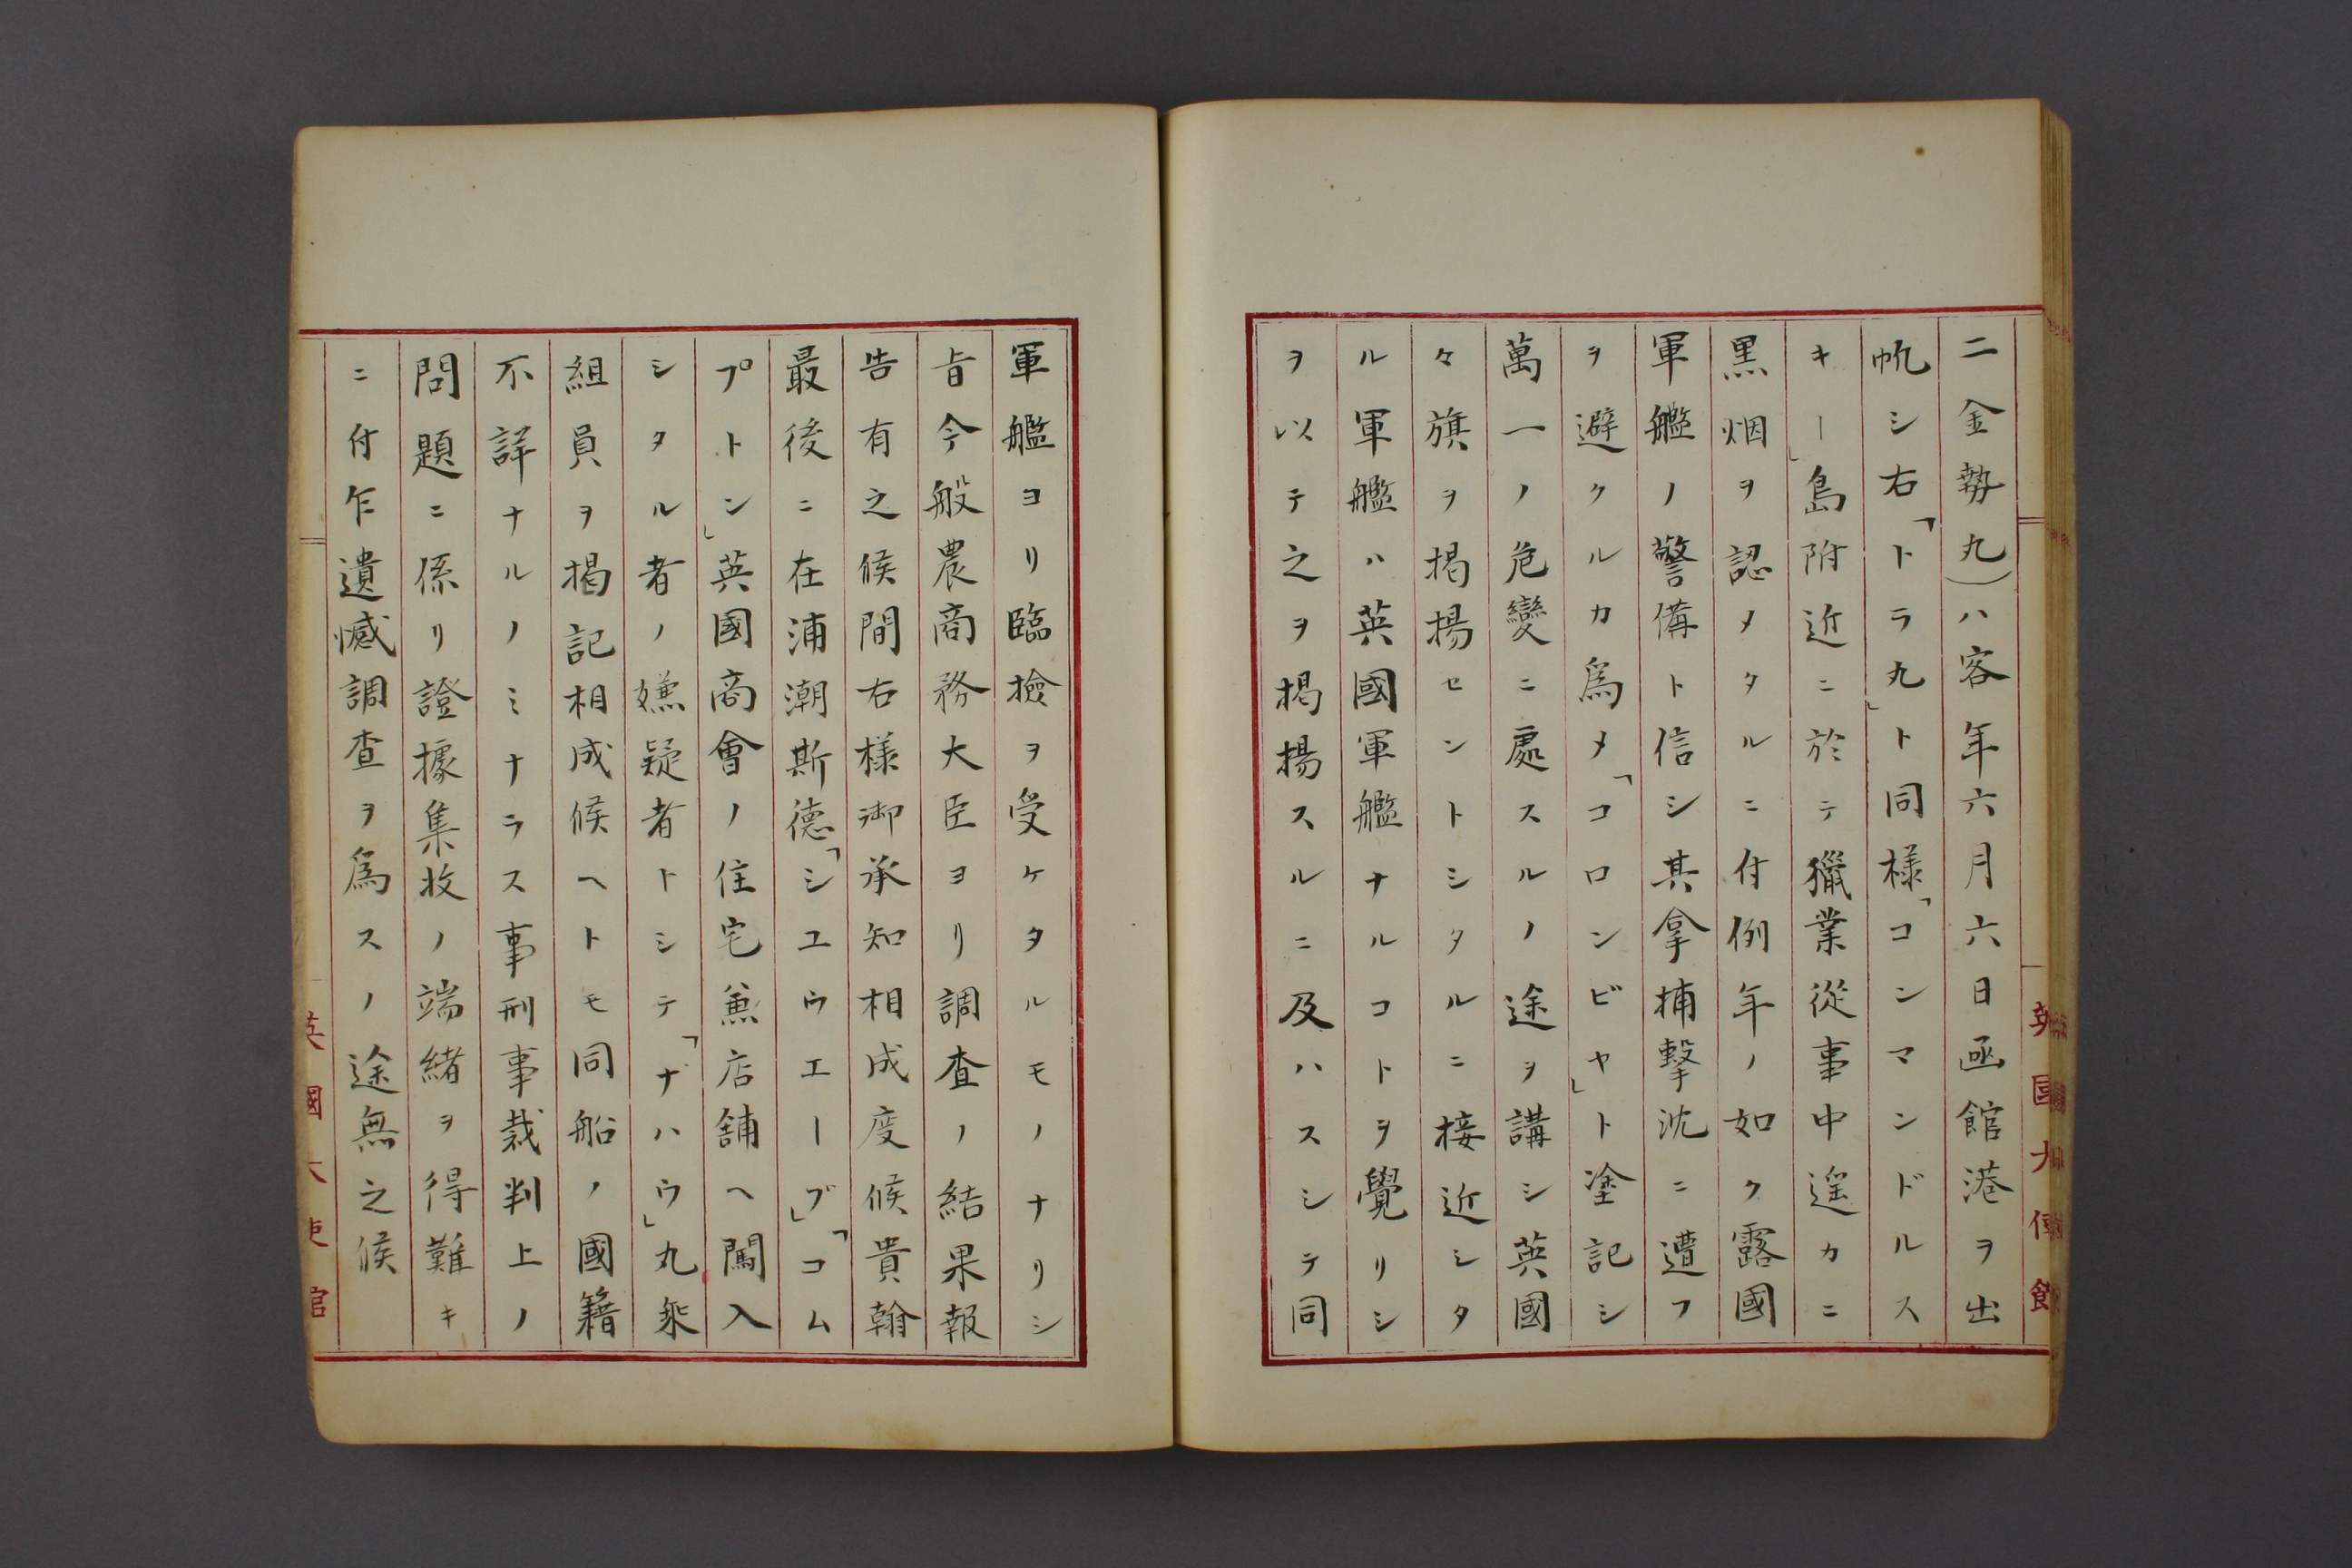 二金勢丸)ハ客年六月六日凾館港ヲ出
帆シ右「トラ丸」ト同様「コンマンドルス
キー」島附近ニ於テ獵業從事中遥カニ
黒烟ヲ認メタルニ付例年ノ如ク露國
軍艦ノ警備ト信シ其拿捕擊沈ニ遭フ
ヲ避クルカ爲メ「コロンビヤ」ト塗記シ
萬一ノ危變ニ處スルノ途ヲ講シ英國
々旗ヲ掲揚セントシタルニ接近シタ
ル軍艦ハ英國軍艦ナルコトヲ覺リシ
ヲ以テ之ヲ掲揚スルニ及ハスシテ同
軍艦ヨリ臨撿ヲ受ケタルモノナリシ
旨今般農商務大臣ヨリ調査ノ結果報
告有之候間右様御承知相成度候貴翰
最後ニ在浦潮斯德「シユウエーブ」「コム
プトン」英國商會ノ住宅兼店舗ヘ闖入
シタル者ノ嫌疑者トシテ「ナハウ」丸乘
組員ヲ掲記相成候ヘトモ同船ノ國籍
不詳ナルノミナラス事刑事裁判上ノ
問題ニ係リ證據集收ノ端緒ヲ得難キ
ニ付乍遺憾調査ヲ爲スノ途無之候
英國大使館